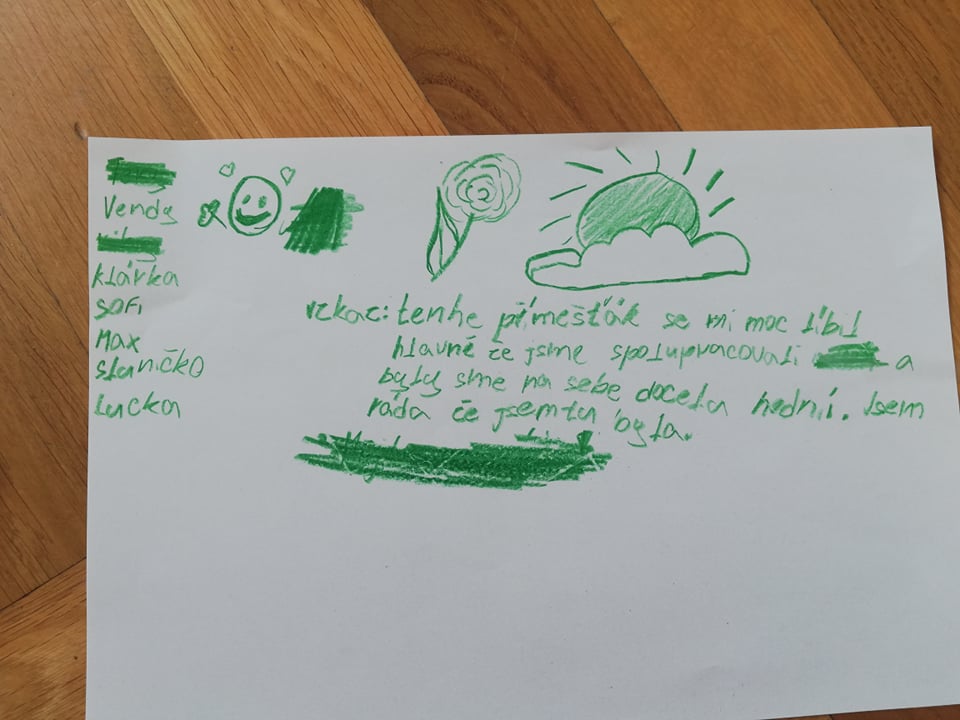 Vendy
klárka
sofi
Max
sluníčko
lucka
vzkaz: tenhe příměšťák se mi moc líbil
hlavně že jsme spolupracovali a
byly sme na sebe docela hodní. Jsem
ráda že jsem tu byla.